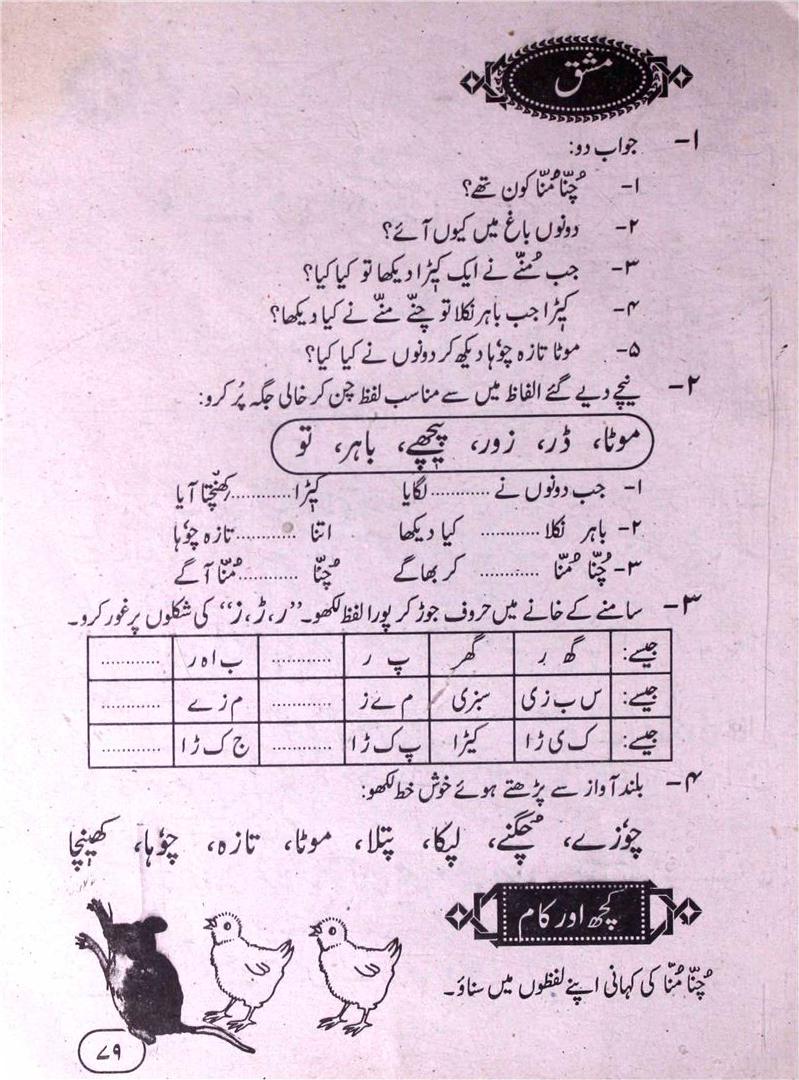 مشق
۱- جواب دو:
۱- چُنّا مُنّا کون تھے؟
۲- دونوں باغ میں کیوں آئے؟
۳- جب مُنّے نے ایک کیڑا دیکھا تو کیا کیا؟
۴- کیڑا جب باہر نکلا تو چنّے منّے نے کیا دیکھا؟
۵- موٹا تازہ چوہا دیکھ کر دونوں نے کیا کیا؟
۲- نیچے دیے گئے الفاظ میں سے مناسب لفظ چن کر خالی جگہ پُر کرو:
موٹا، ڈر، زور، پیچھے، باہر، تو
۱- جب دونوں نے ............ لگایا کیڑا ............ کھنچتا آیا
۲- باہر نکلا ............ کیا دیکھا اتنا ............ تازہ چوہا
۳- چُنّا مُنّا ............ کر بھاگے چُنّا ............ مُنّا آگے
۳- سامنے کے خانے میں حروف جوڑ کر پورا لفظ لکھو۔ ”ر، ڑ، ز“ کی شکلوں پر غور کرو۔
جیسے: گھ ر گھر پ ر ............ ب ا ہ ر ............
جیسے: س ب ز ی سبزی م ے ز ............ م ز ے ............
جیسے: ک ی ڑ ا کیڑا پ ک ڑ ا ............ ج ک ڑ ا ............
۴- بلند آواز سے پڑھتے ہوئے خوش خط لکھو:
چوزے، چُگنے، لپکا، پتلا، موٹا، تازہ، چوہا، کھینچا
کچھ اور کام
چُنّا مُنّا کی کہانی اپنے لفظوں میں سناؤ۔
۷۹